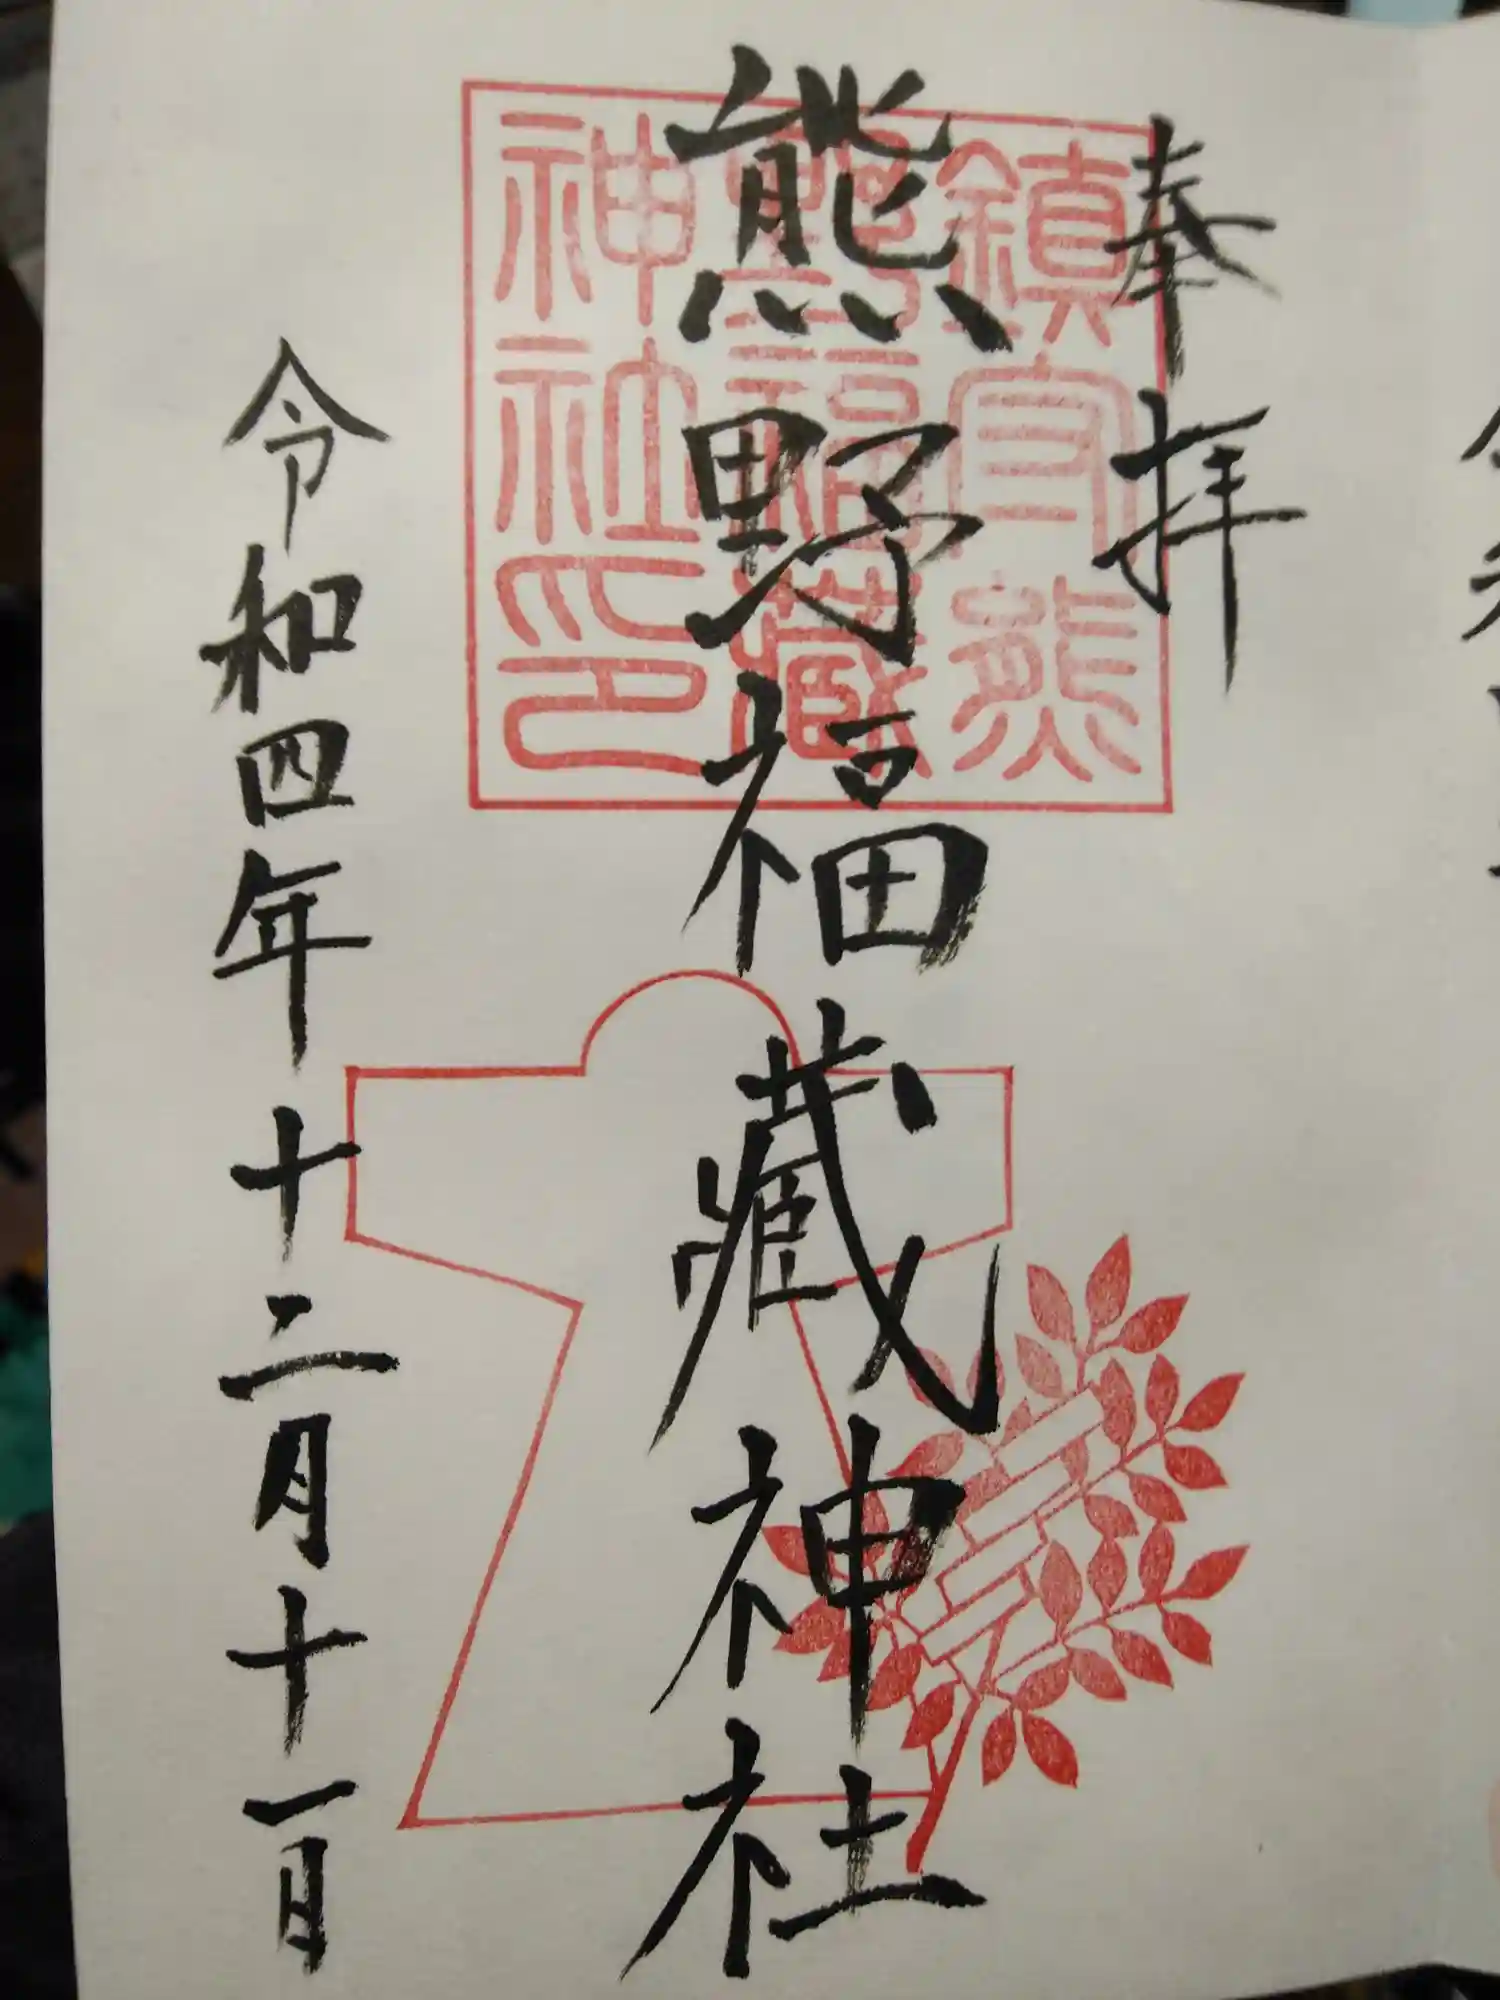 奉拝
鎮官熊
野福蔵
神社印
熊野福藏神社
令和四年十二月十一日